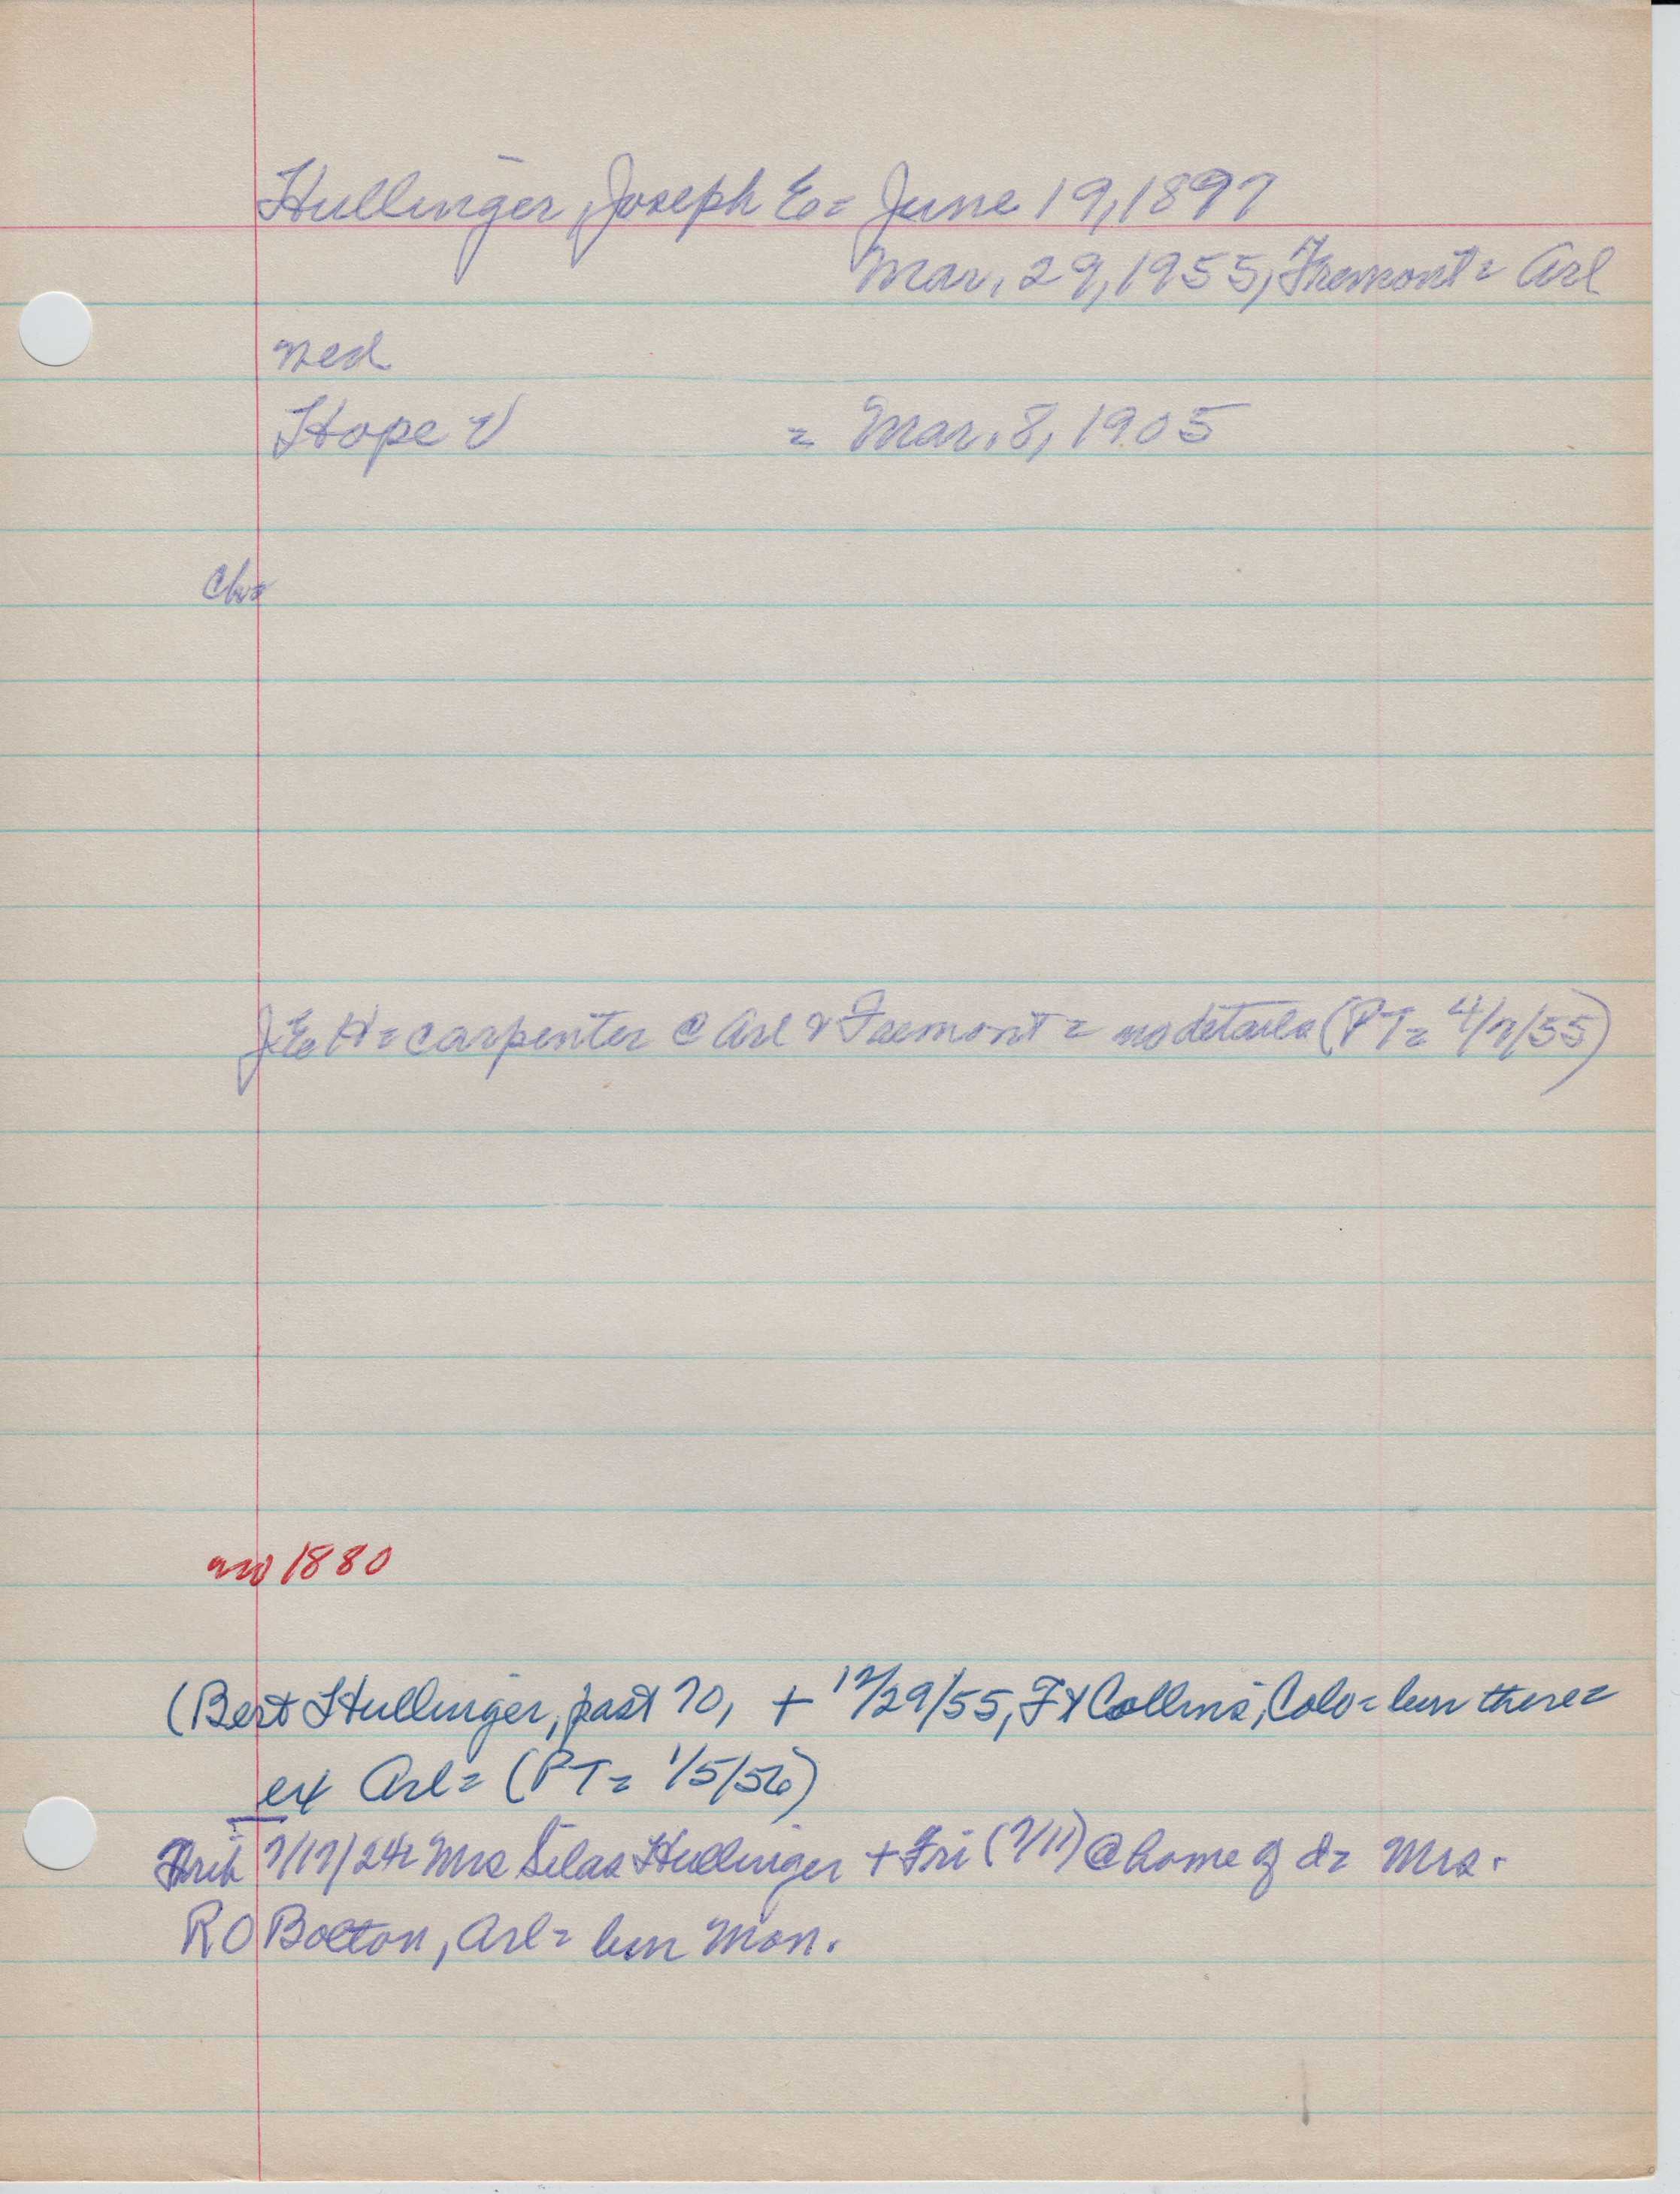 Hullinger, Joseph E = June 19, 1897
Mar. 29, 1955, Fremont = Arl
med
Hope V = Mar. 8, 1905
Ch =
JEH = carpenter @ Arl & Fremont = no details (PT = 4/7/55)
no 1880
(Bert Hullinger, past 70, + 12/29/55, Ft Collins, Colo = bur there =
ex Arl = (PT = 1/5/56)
7/17/24 = Mrs Silas Hullinger + Fri (7/11) @ home of d = Mrs.
R O Bolton, Arl = bur Mon.